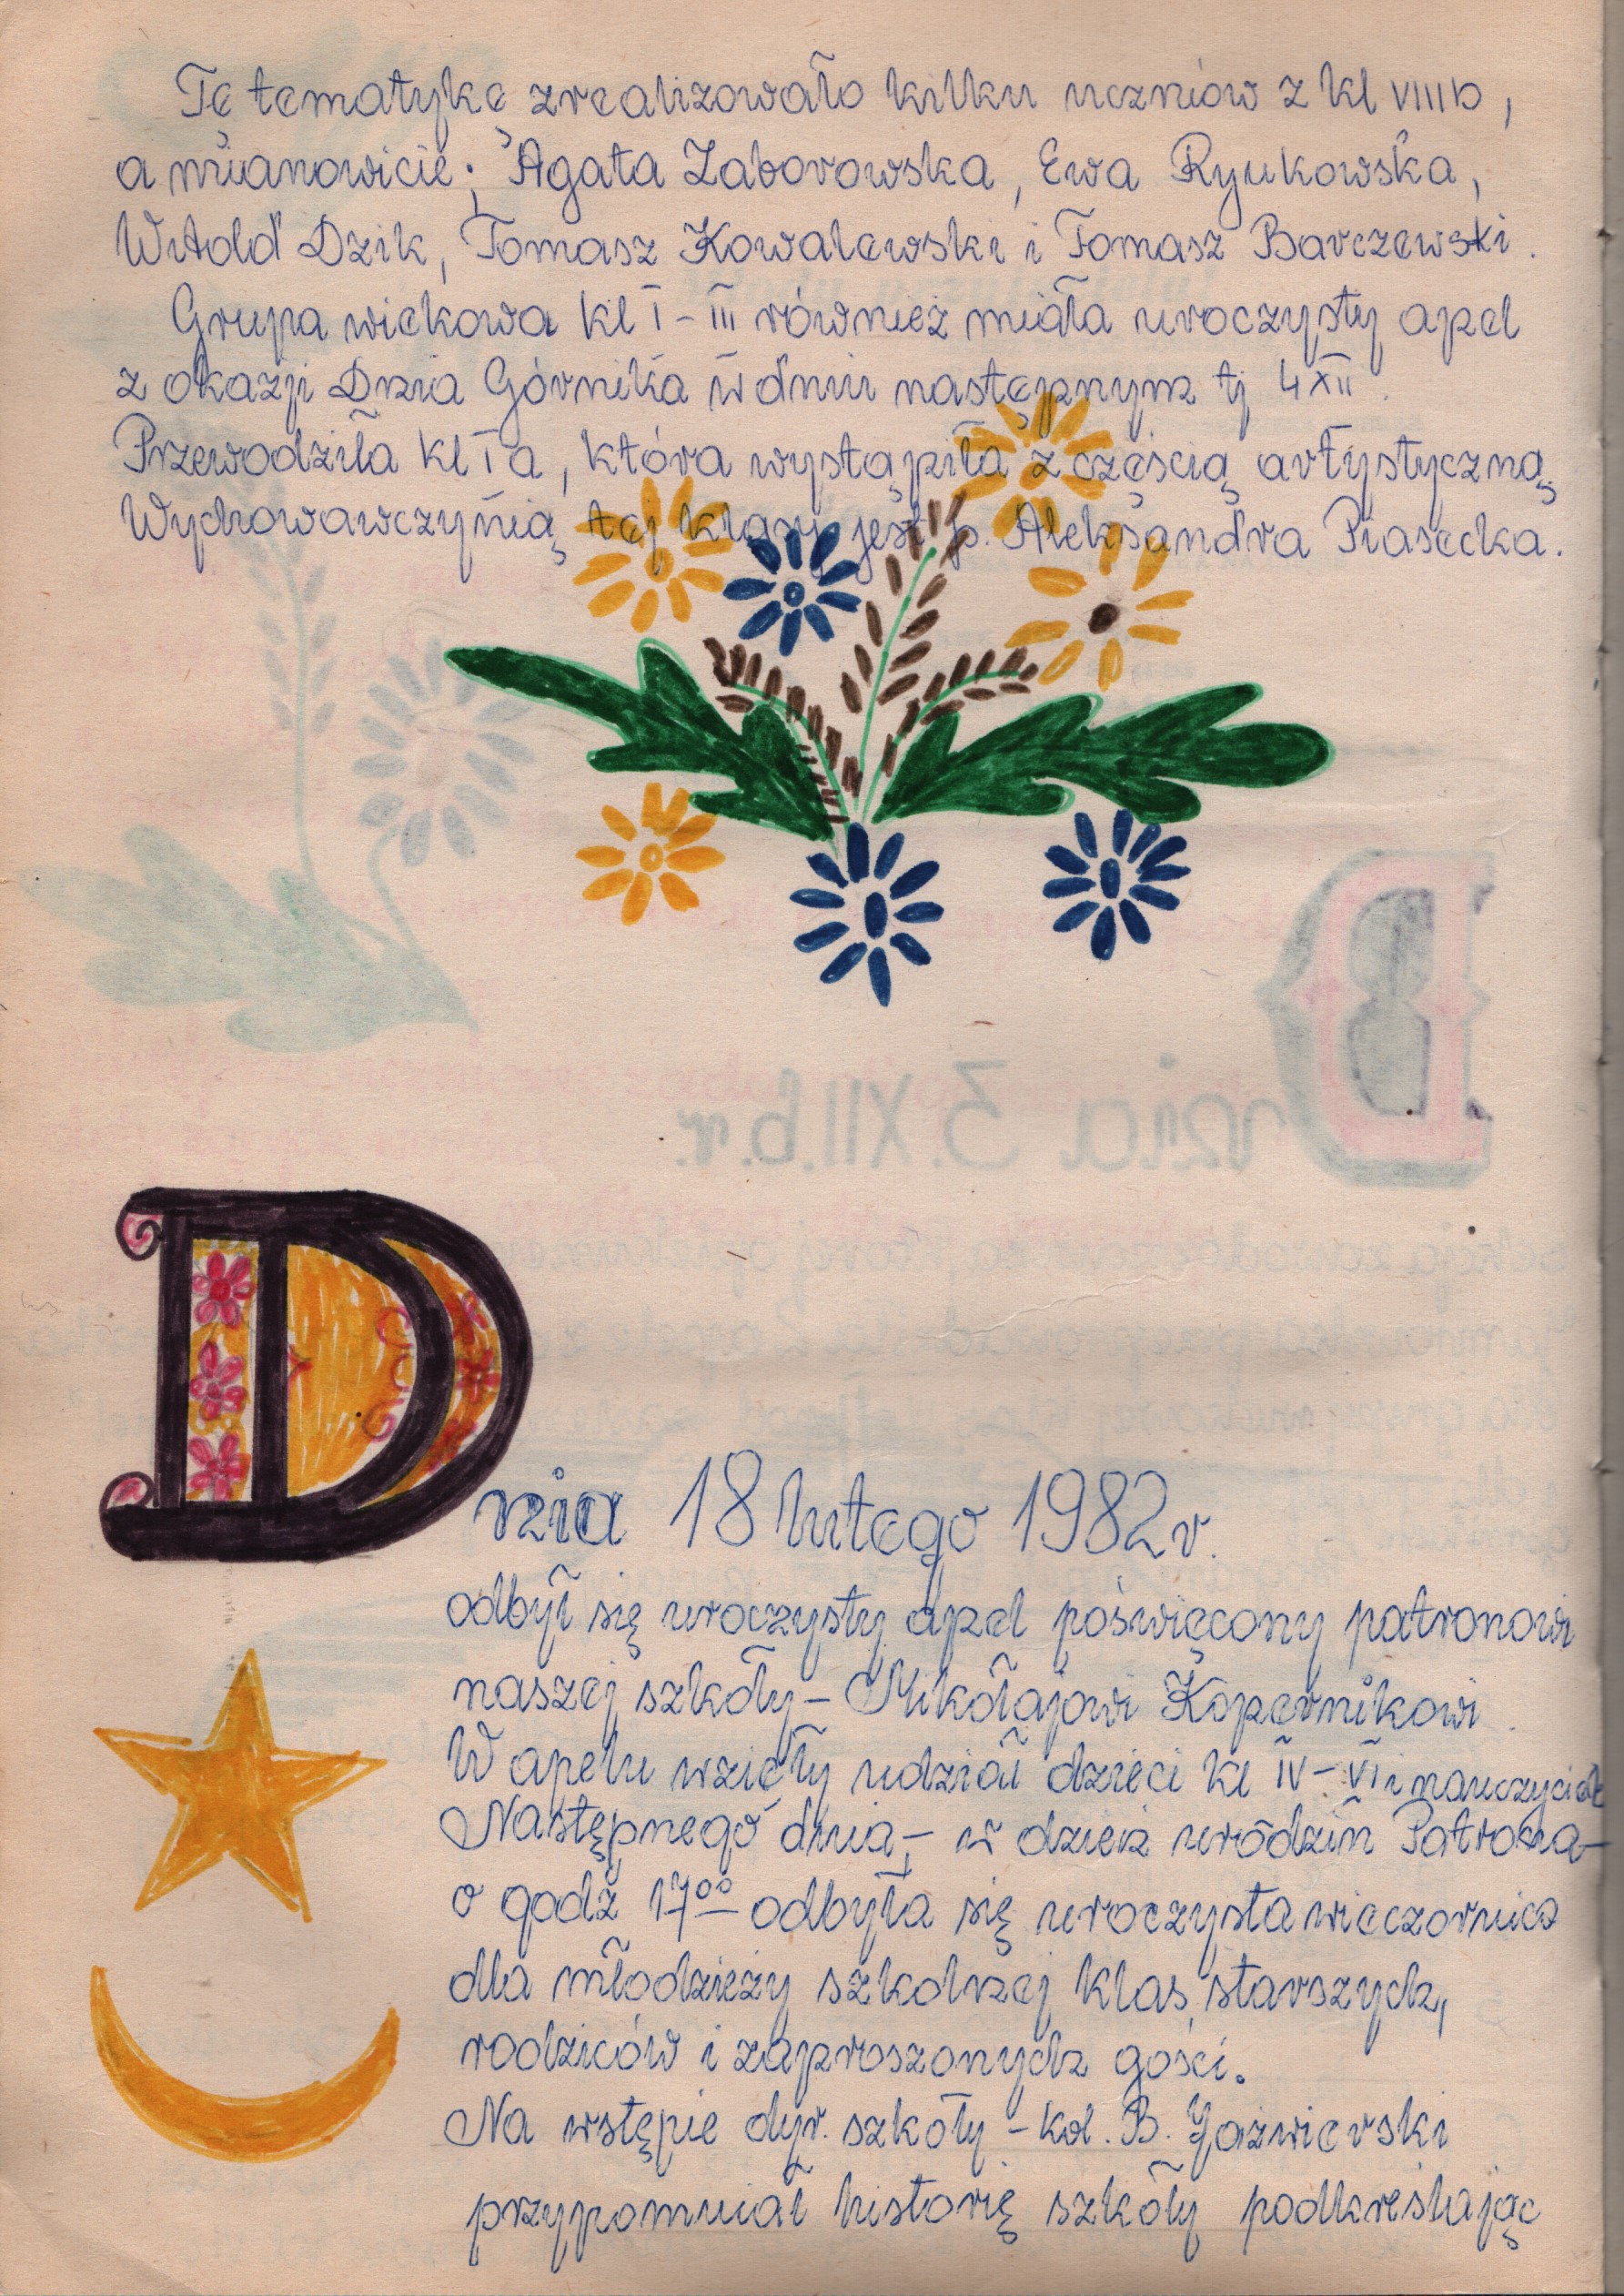 Tę tematykę zrealizowało kilku uczniów z kl VIIIb,
a mianowicie; Agata Zaborowska, Ewa Rynkowska,
Witold Dzik, Tomasz Kowalewski i Tomasz Barczewski.
Grupa wiekowa kl I-III również miała uroczysty apel
z okazji Dnia Górnika w dniu następnym tj 4XII.
Przewodziła kl I a, która wystąpiła z częścią artystyczną.
Wychowawczynią tej klasy jest p. Aleksandra Piasecka.
Dnia 18 lutego 1982r.
odbył się uroczysty apel poświęcony patronowi
naszej szkoły - Mikołajowi Kopernikowi.
W apelu wzięły udział dzieci kl IV-VI i nauczyciele
Następnego dnia, - w dzień urodzin Patrona -
o godz 17⁰⁰ odbyła się uroczysta wieczornica
dla młodzieży szkolnej klas starszych,
rodziców i zaproszonych gości.
Na wstępie dyr. szkoły - kol. B. Jaźwierski
przypomniał historię szkoły podkreślając